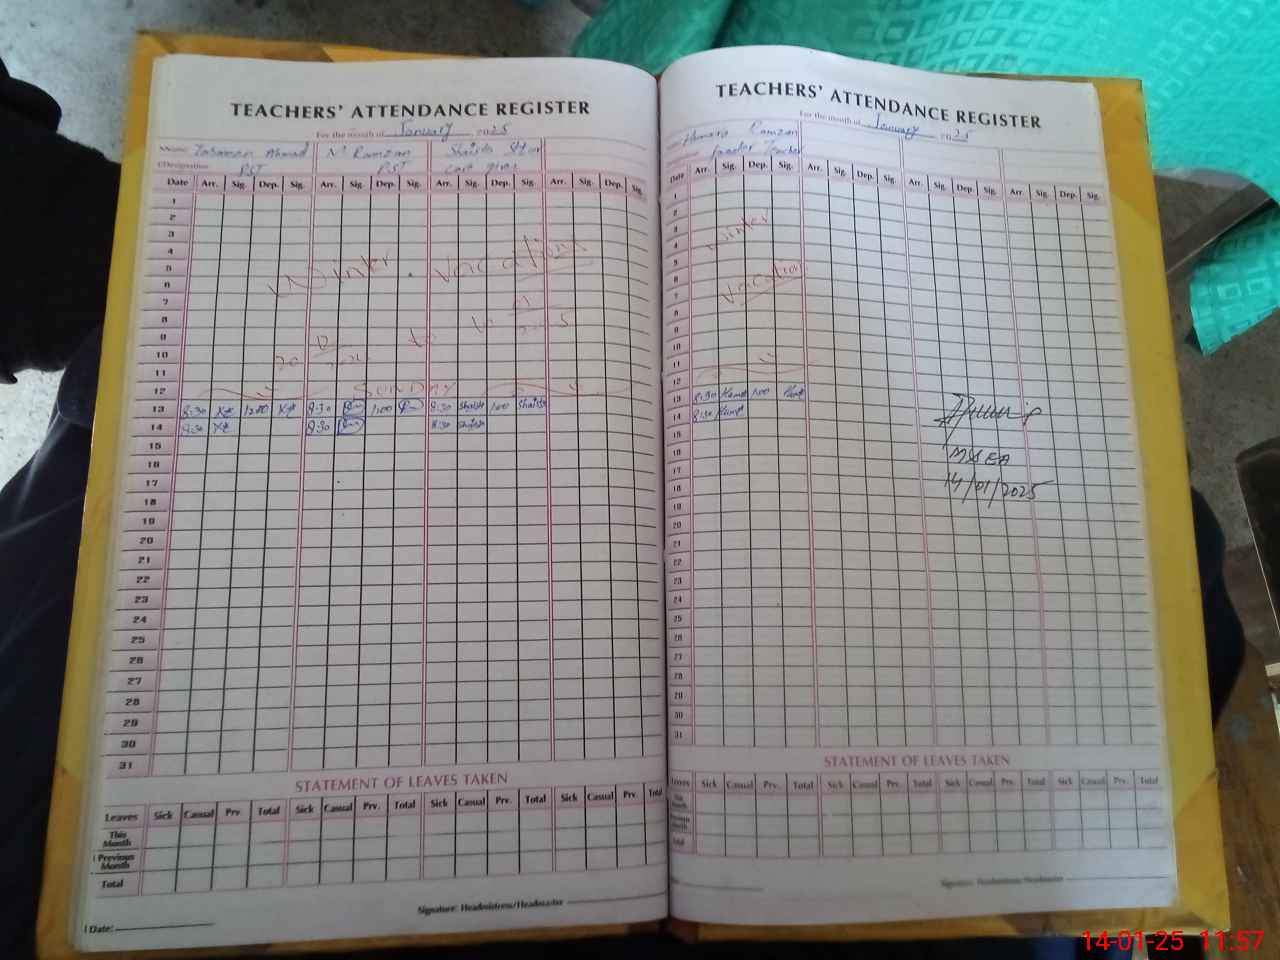 TEACHERS' ATTENDANCE REGISTER
For the month of January 2025
Name: Ahmad M Ramzan Shaida
Designation: PST PST care giver
Date Arr. Sig. Dep. Sig. Arr. Sig. Dep. Sig. Arr. Sig. Dep. Sig. Arr. Sig. Dep. Sig.
1
2
3
4
5
6
7
8
9
10
11
12
Winter Vacations
20 12 to 01
SUNDAY
13 8:30 8:30 1:00 8:30 Shaida 1:00 Shaida
14 8:30 8:30 8:30 Shaida
15
16
17
18
19
20
21
22
23
24
25
26
27
28
29
30
31
STATEMENT OF LEAVES TAKEN
Leaves Sick Casual Prv. Total Sick Casual Prv. Total Sick Casual Prv. Total Sick Casual Prv. Total
This Month
Previous Month
Total
Signature: Headmistress/Headmaster
Date:
TEACHERS' ATTENDANCE REGISTER
For the month of January 2025
Humaira Ramzan
Teacher
Date Arr. Sig. Dep. Sig. Arr. Sig. Dep. Sig. Arr. Sig. Dep. Sig. Arr. Sig. Dep. Sig.
1
2
3
4
5
6
7
8
9
10
11
12
Winter
Vacation
13 8:30 1:00
14 8:30
15
16
17
18
19
20
21
22
23
24
25
26
27
28
29
30
31
MEA
14/01/2025
STATEMENT OF LEAVES TAKEN
Leaves Sick Casual Prv. Total Sick Casual Prv. Total Sick Casual Prv. Total Sick Casual Prv. Total
Month
Month
Total
Signature: Headmistress/Headmaster
14-01-25 11:57